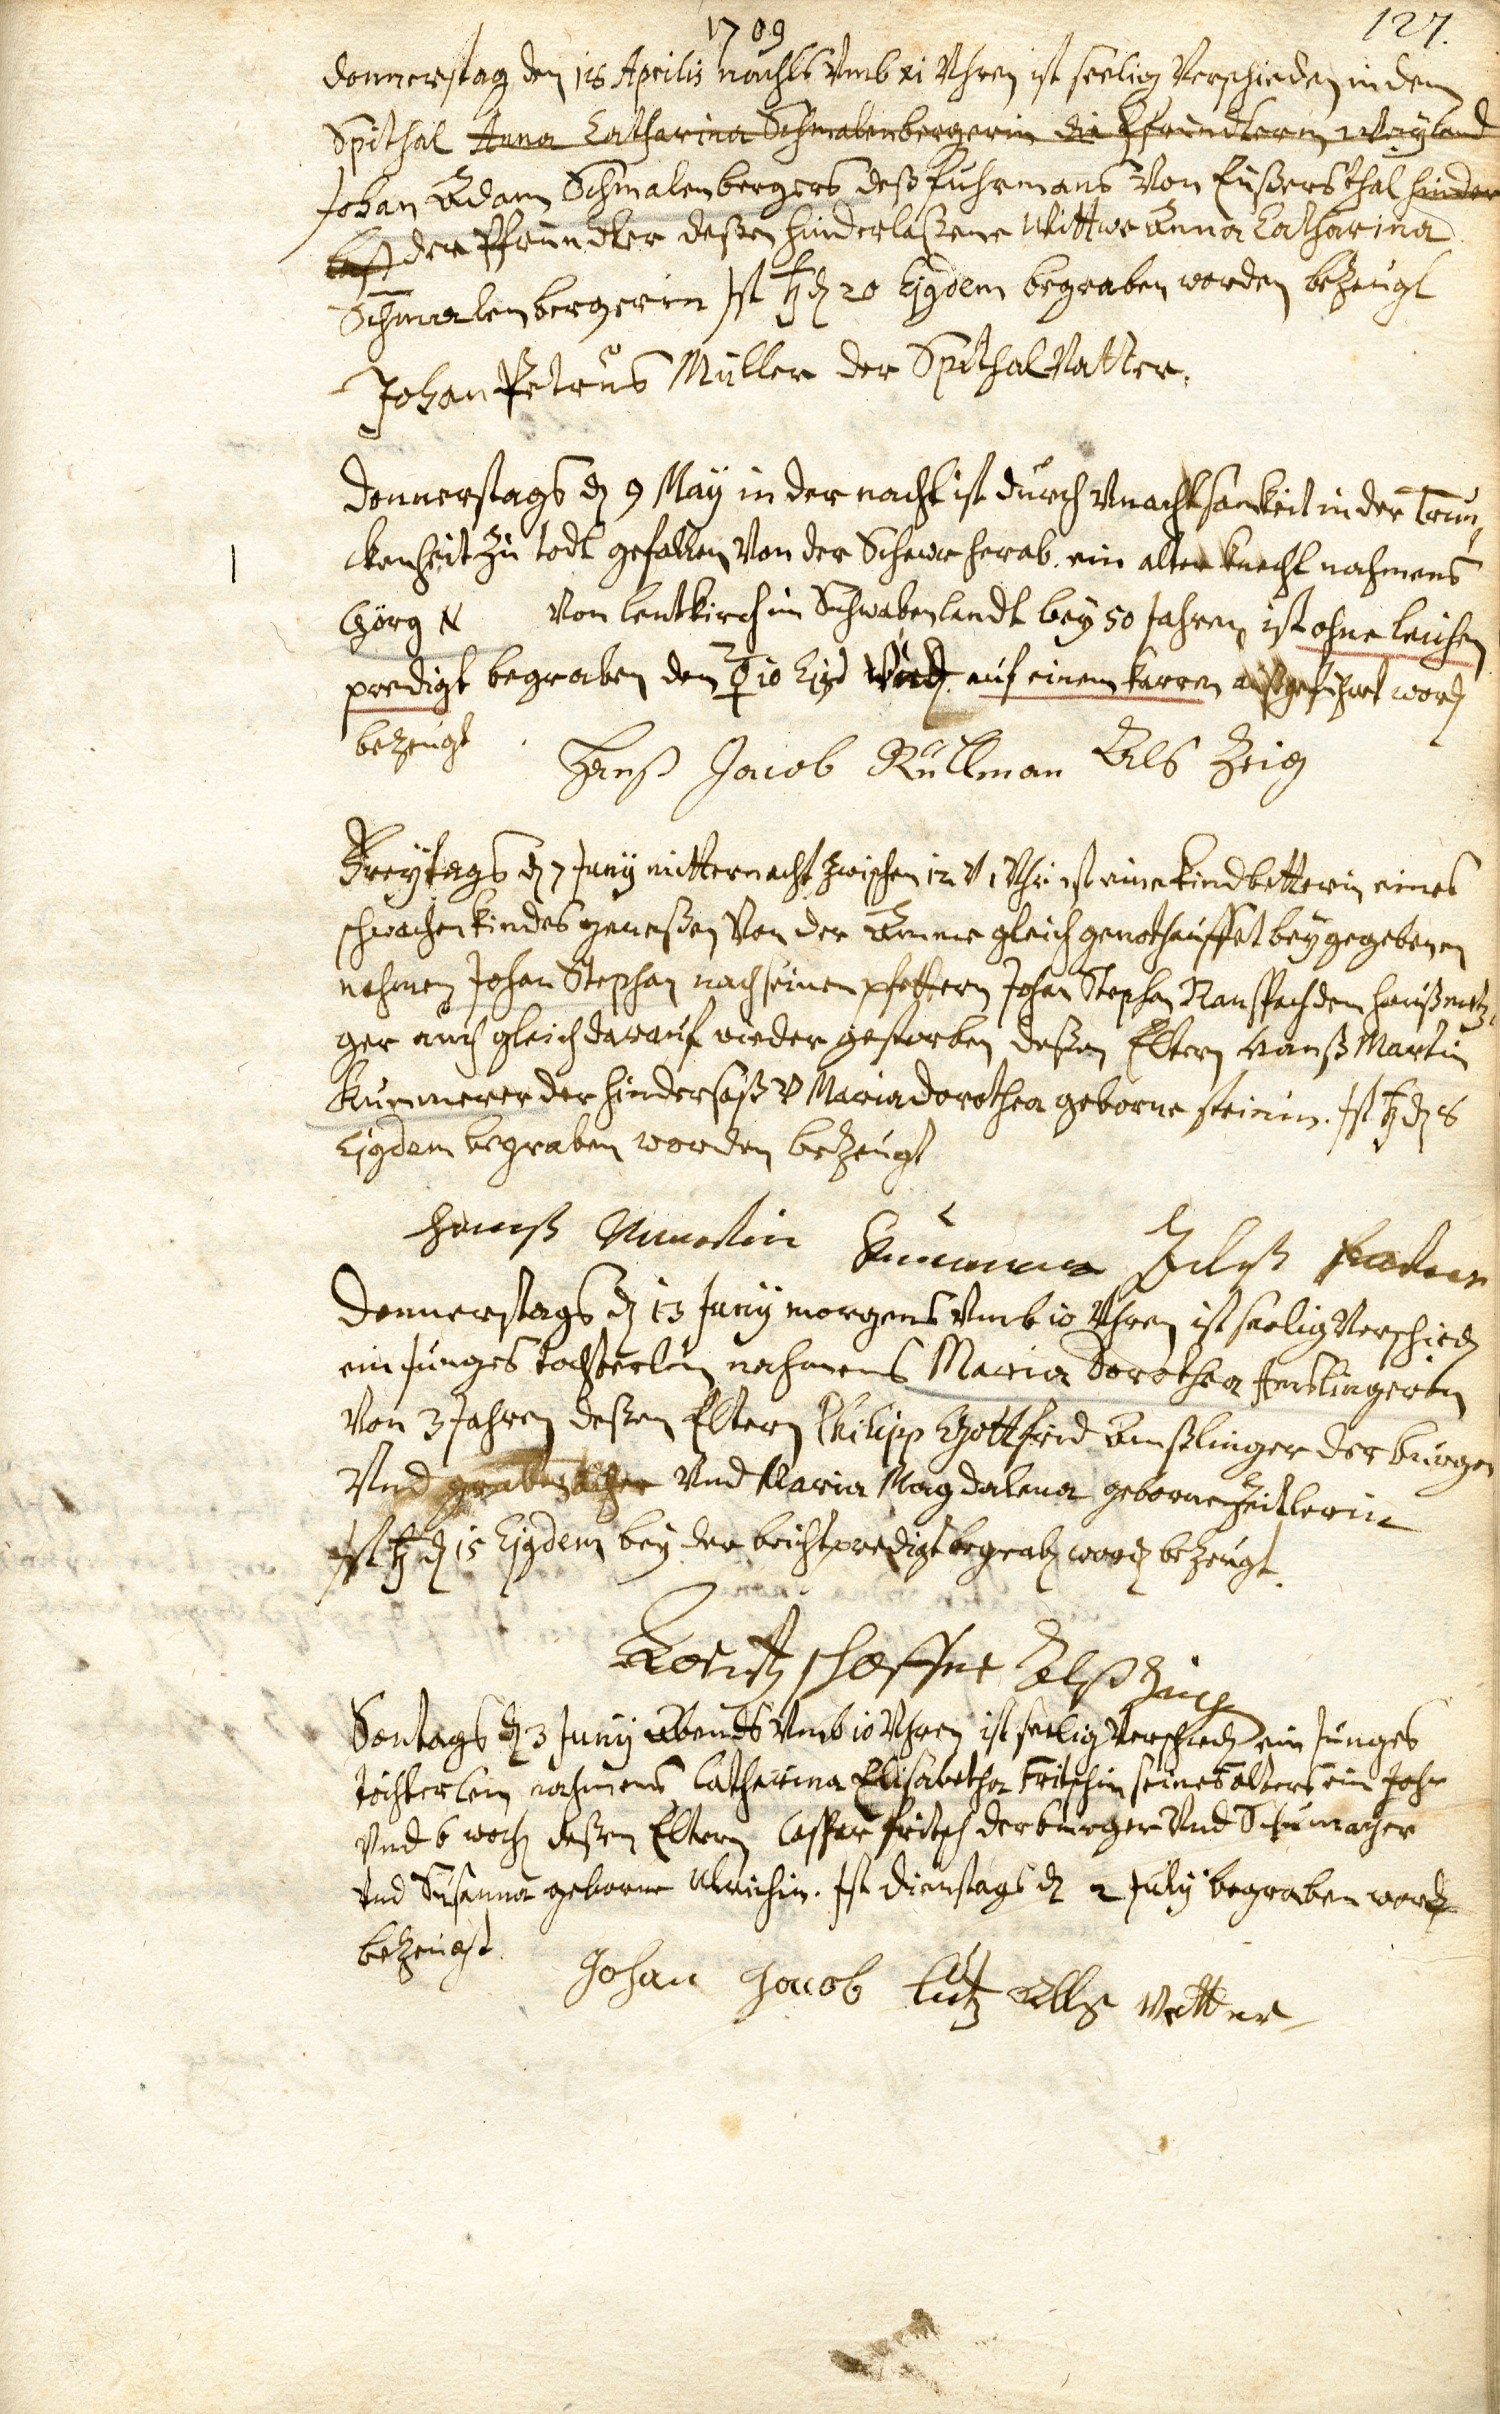 1709
127.
Donnerstag den 18 Aprilis nachts Vmb xi Vhren ist seelig Verschieden in dem
Spithal Anna Catharina Schmalenbergerin die Pfründterin weyland
Johan Adam Schmalenbergers deß fuhrmans Von Eußersthal hinder
laß der Pfründter deßen hinderlaßene Wittwe Anna Catharina
Schmalenbergerin Ist ♄ dẽ 20 Ejgdem begraben worden bezeugt
Johan Petrus Müller der SpithalVatter.
Donnerstags dẽ 9 May in der nacht ist durch Vnachtsamkeit in der Trun,
kenheit zu todt gefallen Von der Scheure herab, ein alter knecht nahmens
Görg N Von leutkirch im Schwabenlandt bey 50 Jahren, ist ohne leichen
predigt begraben den ♀ 10 Ejgd auf einem karren außgeführt word
bezeugt
Hanß Jacob Rüllman Als Zeig
Freytags dẽ 7 Juny mitternacht zwischen 12 V 1 Vhr ist eine kindbetterin eines
schwachen kindes geneßen Von der Amme gleich genothauffet beygegebenen
nahmen Johan Stephan nach seinen pfettern Johan Stephan Ranspach dem haußmetz,
ger auch gleich darauf wieder gestorben deßen Eltern Hanß Martin
Kummerer der hindersaß V Maria Dorothea geborne steinin. Ist ♄ dẽ 8
Ejgdem begraben worden bezeugt
Hanß Martin Kummerer Alß fatter
Donnerstags dẽ 13 Juny morgens Vmb 10 Vhren ist seelig Verschied
ein junges tochterlein nahmens Maria Dorothea Amslingerin
Von 3 Jahren deßen Eltern Philipp Gottfrid Amßlinger der burger
Vnd Vnd Maria Magdalena geborne Zeitlerin
Ist ♄ dẽ 15 Ejgdem bey der beichtpredigt begrab word bezeugt.
Alß Zeig
Sontags dẽ 3 Juny Abends Vmb 10 Vhren ist seelig Verschied ein Junges
töchterlein nahmens Catharina Elisabetha Fritschin seines alters ein Jahr
Vnd 6 woch deßen Eltern Caspar fritsch der burger Vnd Schumacher
Vnd Susanna geborne Ulrichin. Ist Dienstags dẽ 2 July begraben word
bezeugt.
Johan Jacob Lutz Alß Vatter